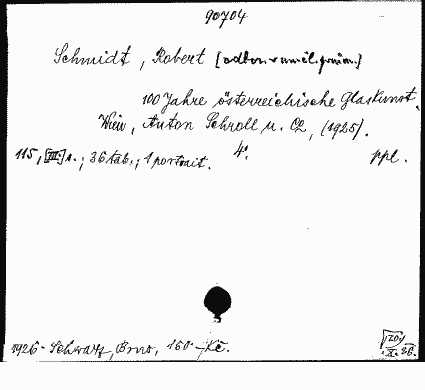 90704
Schmidt, Robert [odbor. v uměl. prům.]
100 Jahre österreichische Glaskunst.
Wien, Anton Schroll u. Co, (1925).
115, [III] s.; 36 tab.; 1 portrait. 4°. ppl.
1926 - Schwarz, Brno, 160 - Kč.
X. 26.